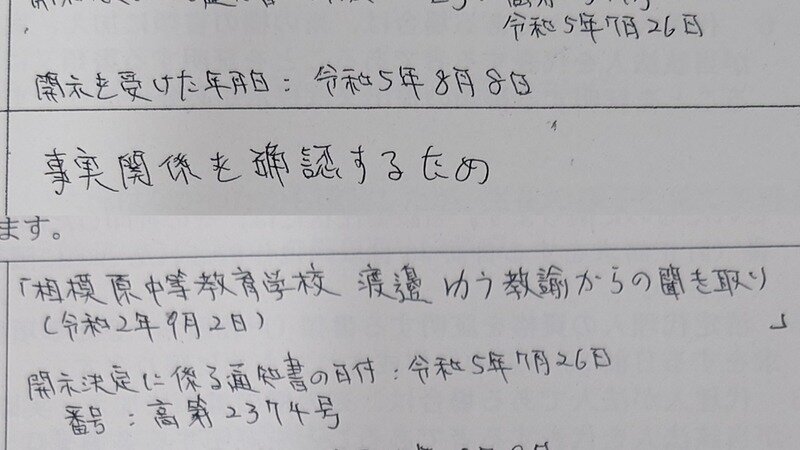 令和5年7月26日
開示を受けた年月日：令和5年8月8日
事実関係を確認するため
ます。
「相模原中等教育学校 渡邊 ゆう教諭からの聞き取り
(令和2年9月2日)」
開示決定に係る通知書の日付：令和5年7月26日
番号：高第2374号